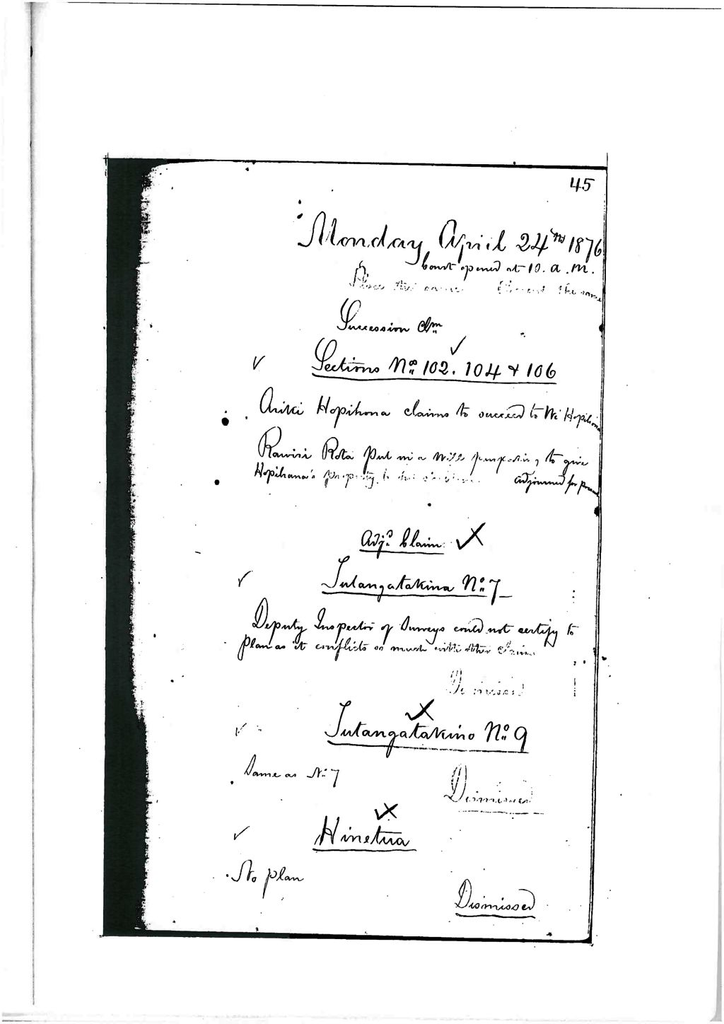 45
Monday April 24th 1876
Court opened at 10. a.m.
the same
Succession Clm
Sections Nos 102. 104 & 106
Ariki Hopihona claims to succeed to Wi Hopihona
Rawiri Rota put in a Will purporting to give
Hopihana's property to adjourned for
Adjd Claim
Tutangatakina No 7
Deputy Inspector of Surveys could not certify to
plan as it conflicts so much with other Claims
Dismissed
Tutangatakino No 9
Same as No 7
Dismissed
Hinetua
No plan
Dismissed